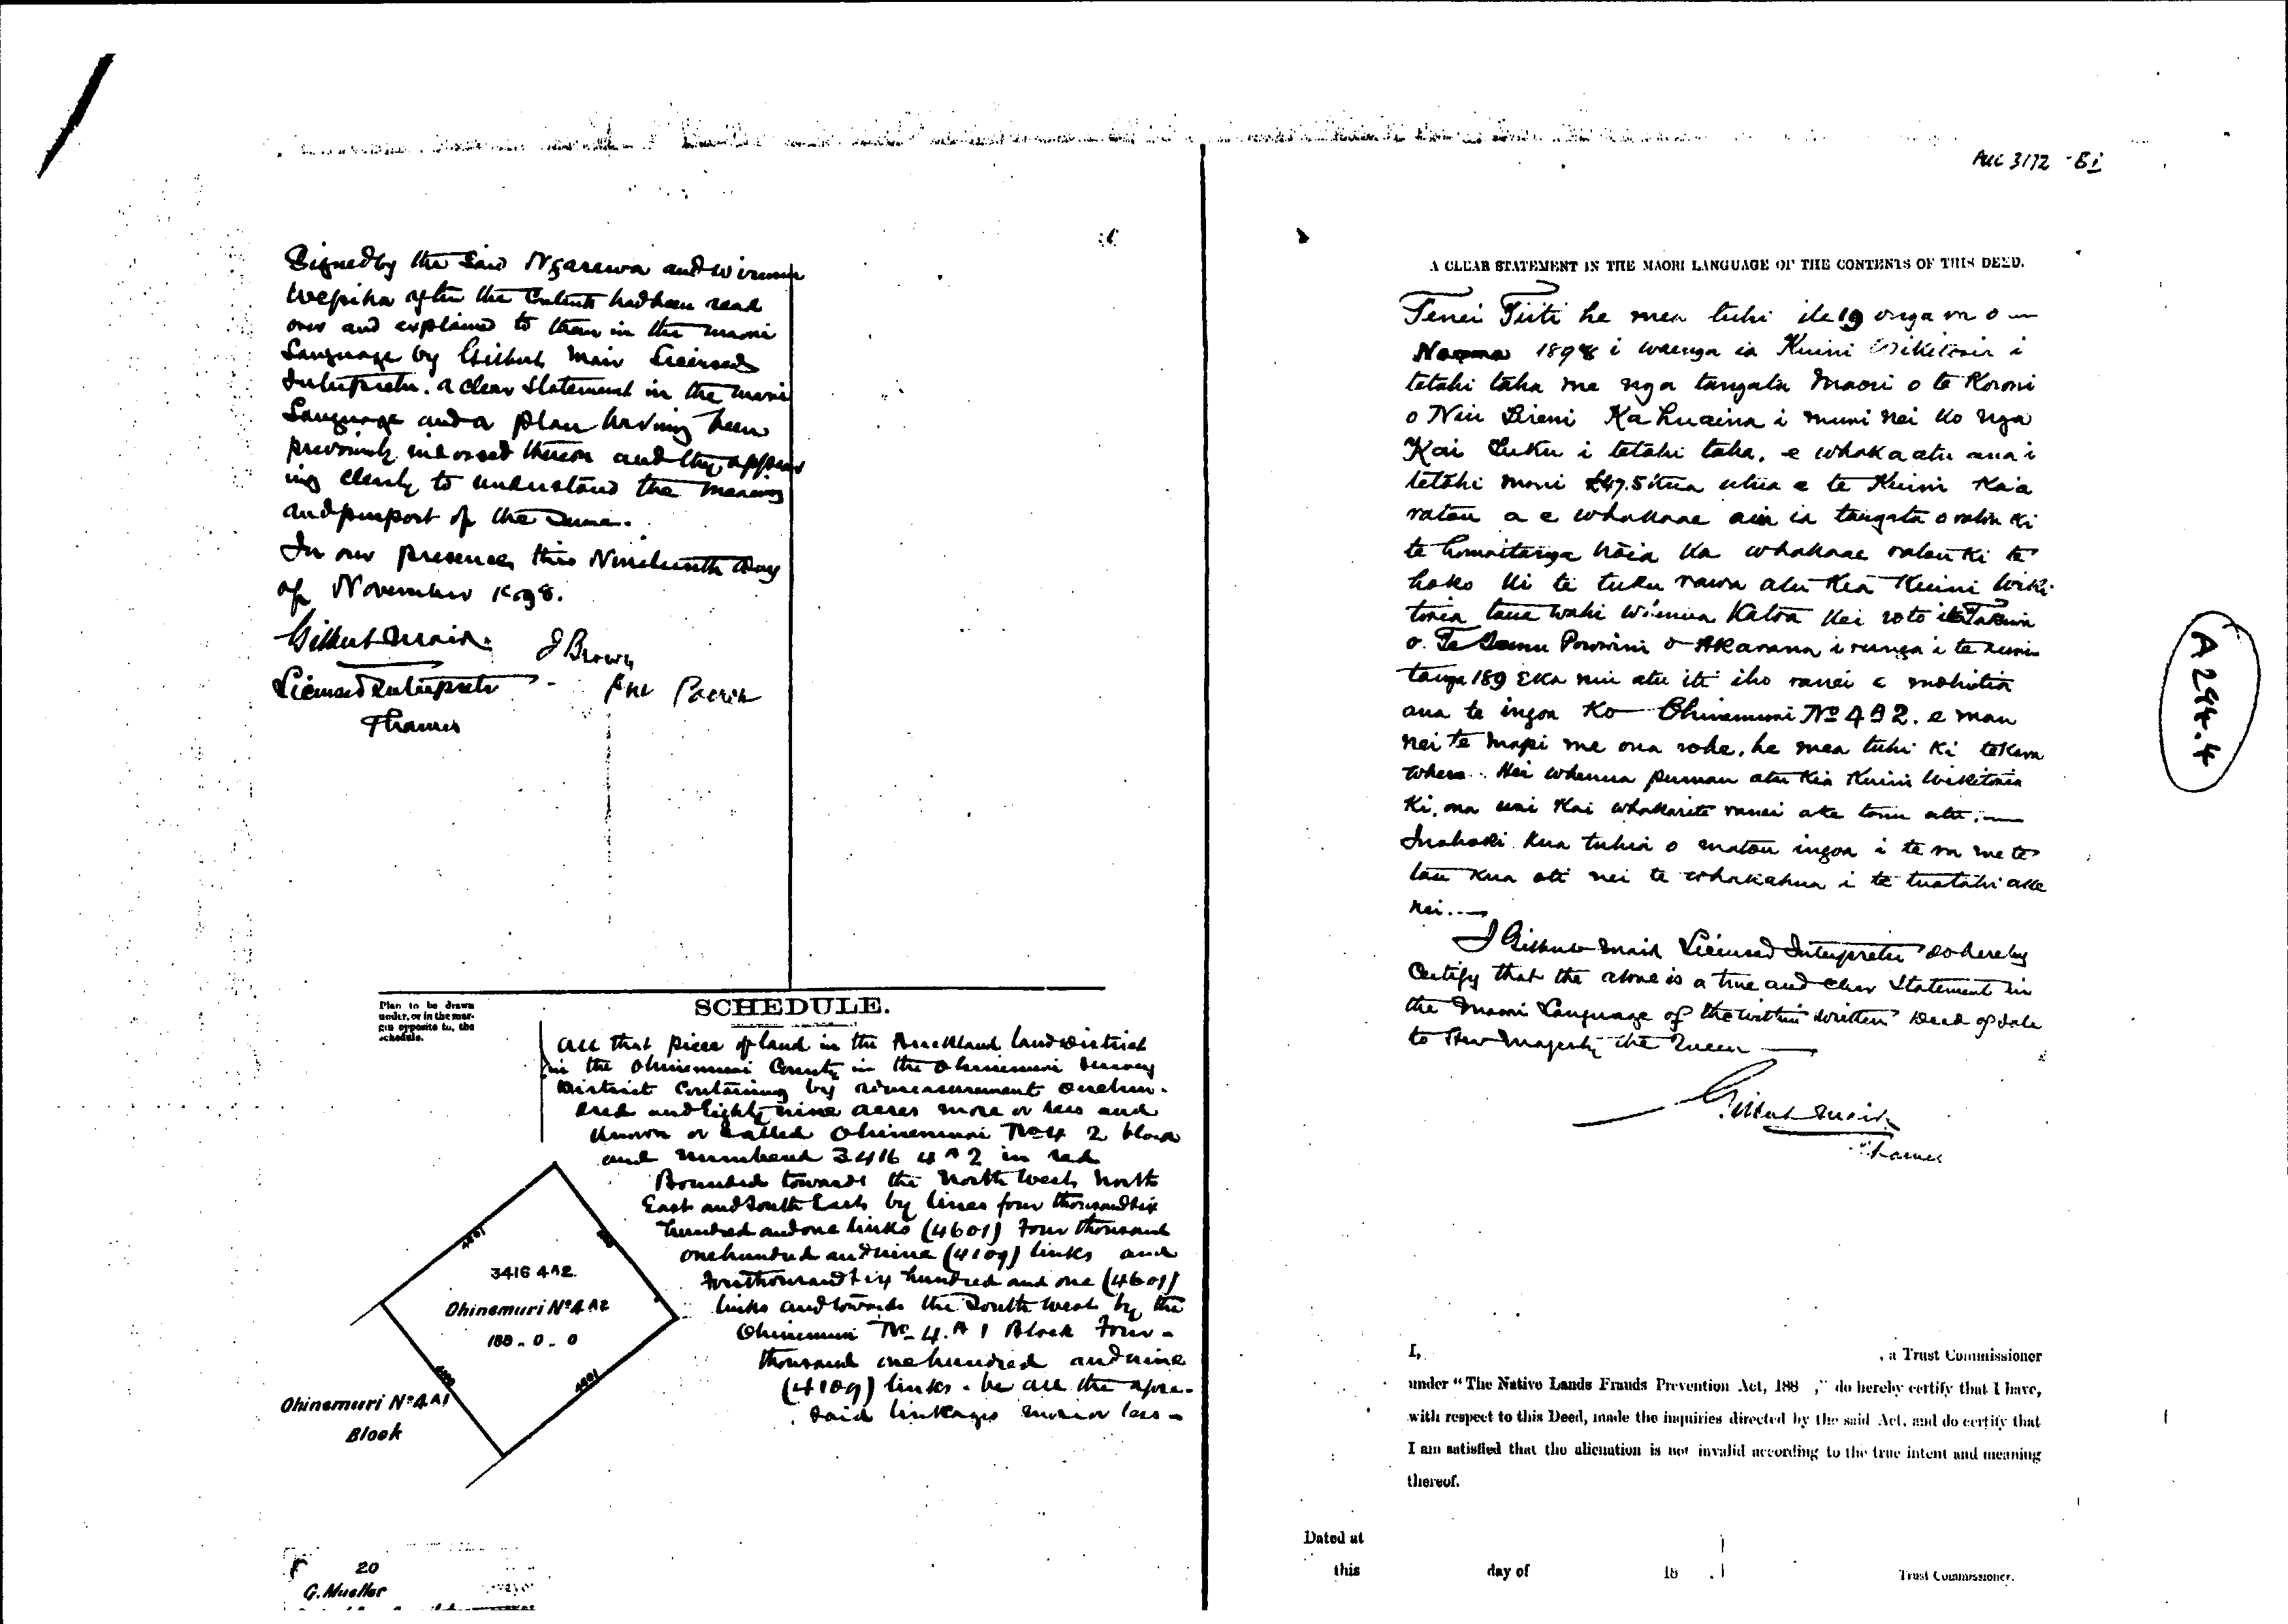 Signed by the said Ngarewa and Wirimu
Wepiha after the Contents had been read
over and explained to them in the maori
Language by Gilbert Mair Licensed
Interpreter. a clear Statement in the maori
Language and a plan having been
previously indorsed thereon and they appear
ing clearly to understand the meaning
and purport of the same.
In our presence this Nineteenth day
of November 1898.
Gilbert Mair. J Brown
Licensed Interpreter
Thames
Plan to be drawn
under, or in the mar-
gin opposite to, the
schedule.
SCHEDULE.
All that piece of land in the Auckland land District
in the Ohinemuri County in the Ohinemuri Survey
District Containing by admeasurement one hun-
dred and Eighty nine acres more or less and
known or called Ohinemuri No 4 2 block
and numbered 3416 4A2 in red
Bounded towards the North West, North
East and South East by lines four thousand six
hundred and one links (4601) Four thousand
one hundred and nine (4109) links and
four thousand six hundred and one (4601)
links and towards the South West by the
Ohinemuri No 4. A 1 Block Four-
thousand one hundred and nine
(4109) links. be all the afore-
said linkages more or less-
4601
3416 4A2.
Ohinemuri No 4 A2
189 . 0 . 0
4601
Ohinemuri No 4 A1
Block
20
G. Mueller
AUC 3172 - B1
A CLEAR STATEMENT IN THE MAORI LANGUAGE OF THE CONTENTS OF THIS DEED.
Tenei Tiiti he mea tuhi i te 19 o nga ra o
Noema 1898 i waenga ia Kuini Wikitoria i
tetahi taha me nga tangata Maori o te Koroni
o Niu Tireni Ka huaina i muri nei ko nga
Kai Tuku i tetahi taha, e whakaatu ana i
tetahi moni £47.5 kua utua e te Kuini Ki a
ratou a e whakaae ana ia tangata o ratou ki
te homaitanga Noia ka whakaae ratou ki te
hoko ki te tuku rawa atu Kia Kuini Wiki-
toria taua wahi whenua Katoa Kei roto i te Takiwa
o. Te Porowini o Akarana i runga i te ruri
tanga 189 Eka nui atu iti iho ranei e mohiotia
ana te ingoa Ko Ohinemuri No 4 A 2. e mau
nei te mapi me ona rohe, he mea tuhi ki te Kara
whero. Hei whenua pumau atu Kia Kuini Wikitoria
Ki, ona uri Kai whakarite ranei ake tonu atu.
Inahoki Kua tuhia o matou ingoa i te ra me te
tau Kua oti nei te whakahua i te tuatahi ake
nei.
I Gilbert Mair Licensed Interpreter do hereby
Certify that the above is a true and clear Statement in
the Maori Language of the within written Deed of Sale
to Her Majesty the Queen
Gilbert Mair
Thames
A 294.4
I, , a Trust Commissioner
under "The Native Lands Frauds Prevention Act, 188 ," do hereby certify that I have,
with respect to this Deed, made the inquiries directed by the said Act, and do certify that
I am satisfied that the alienation is not invalid according to the true intent and meaning
thereof.
Dated at
this day of 18 .
Trust Commissioner.